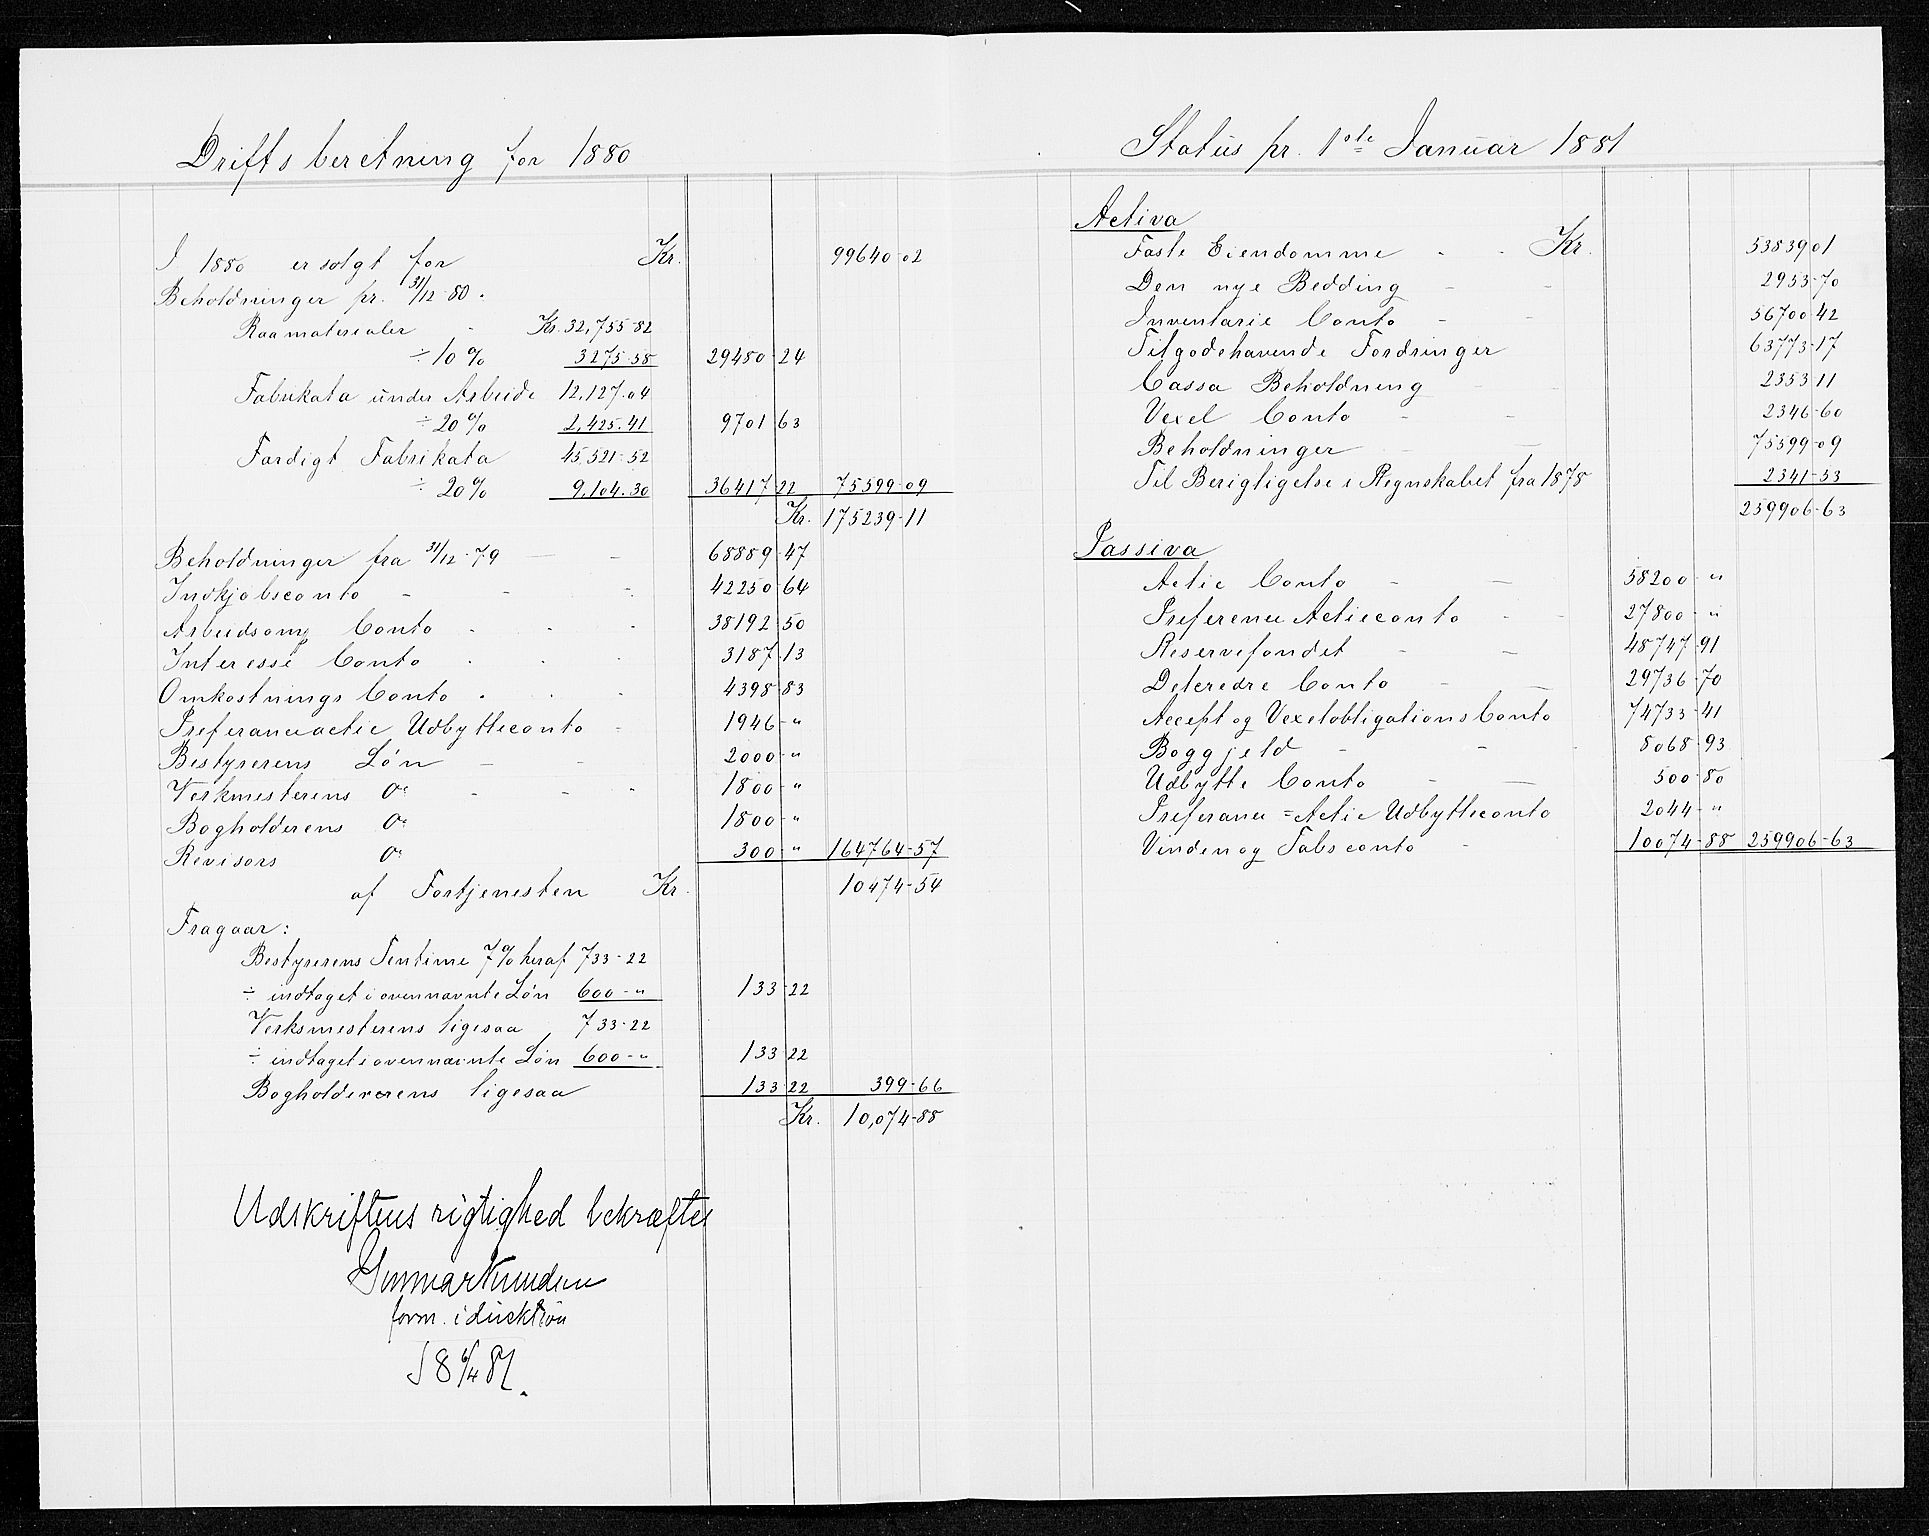 Driftsberetning for 1880
I 1880 er solgt for Kr. 99640-02
Beholdninger pr. 31/12-80.
Raamaterialer - Kr. 32,755-82
÷ 10% 3275-58 29480-24
Fabrikata under Arbeide 12,127.04
÷ 20% 2,425.41 9701 63
Færdigt Fabrikata 45,521-52
÷ 20% 9,104.30 36417 22 75599-09
Kr. 175239-11
Beholdninger fra 31/12-79 — - 68889-47
Indkjøbsconto - - - 42250-64
Arbeidsom Conto - - - 38192-50
Interesse Conto - - - 3187-13
Omkostnings Conto - - - 4398-83
Preferanceactie Udbytteconto - 1946-"
Bestyrerens Løn - - 2000-"
Verkmesterens Do - - - 1800-"
Bogholderens Do 1800-"
Revisors Do 300-" 164764-57
af Fortjenesten Kr. 10474-54
Fragaar:
Bestyrerens Tentime 7% heraf 733-22
÷ indtaget i ovennævnte Løn 600-" 133-22
Verksmesterens ligesaa 733-22
÷ indtaget i ovennævnte Løn 600-" 133 22
Bogholdererens ligesaa 133-22 399-66
Kr. 10,074-88
Udskriftens rigtighed bekræftes
Gunnar Knudsen
form. i direktion
18 6/4 81.
Status pr. 1ste Januar 1881
Activa
Faste Eiendomme - - Kr. 53839 01
Den nye Bedding - - 2953-70
Inventarie Conto - - 56700 42
Tilgodehavende Fordringer 63773-17
Cassa Beholdning 2353 11
Vexel Conto - - 2346-60
Beholdninger - — 75599-09
Til Berigtigelse i Regnskabet fra 1878 2341-53
259906-63
Passiva
Actie Conto - — 58200-"
Preference Actieconto - - 27800-"
Reservefondet - — 48747-91
Delcredre Conto - — 29736-70
Accept og Vexelobligations Conto 74733-41
Boggjeld - - 8068-93
Udbytte Conto - — 500-80
Preferance = Actie Udbytteconto 2044-"
Vinden og Tabsconto - 10074-88 259906-63